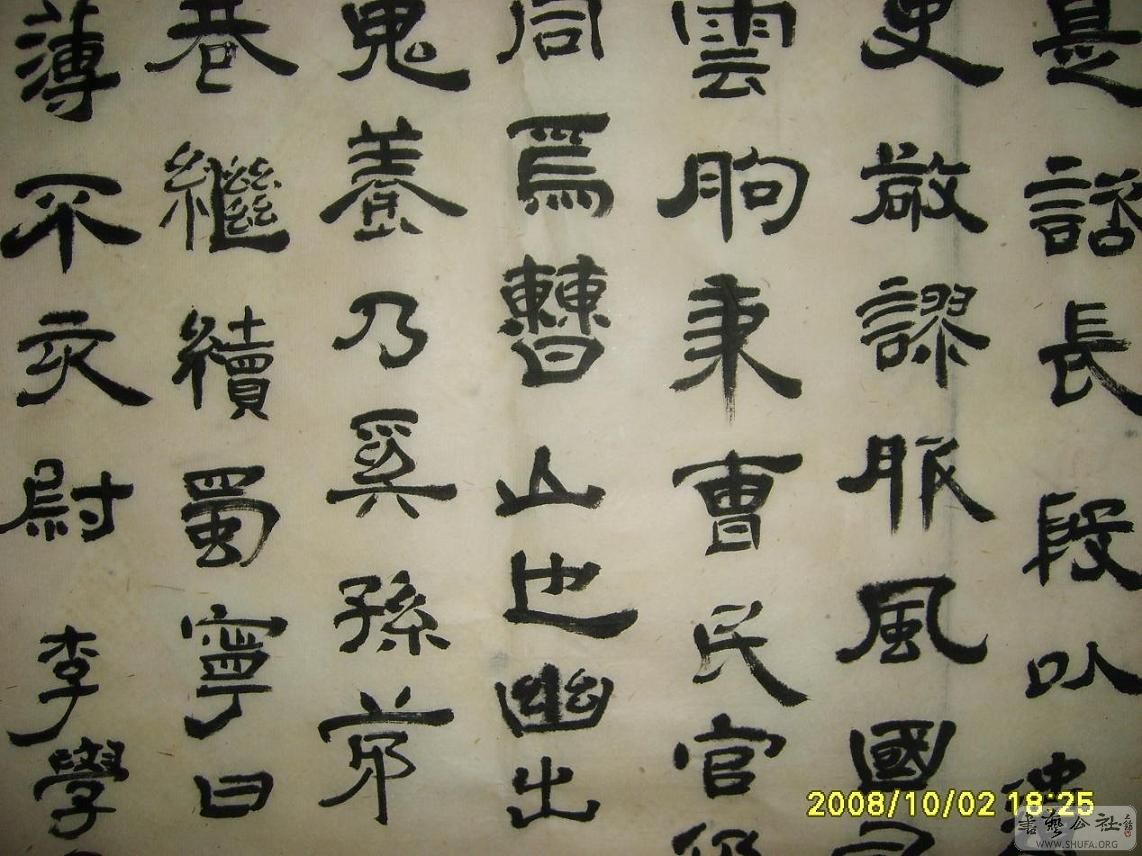 是長段以
史敬謬脈風國
雲朐秉曹民官
同焉山也幽出
鬼養乃奚孫弟
巷繼續蜀寧曰
薄不亥尉李學
2008/10/02 18:25
书艺公社
WWW.SHUFA.ORG